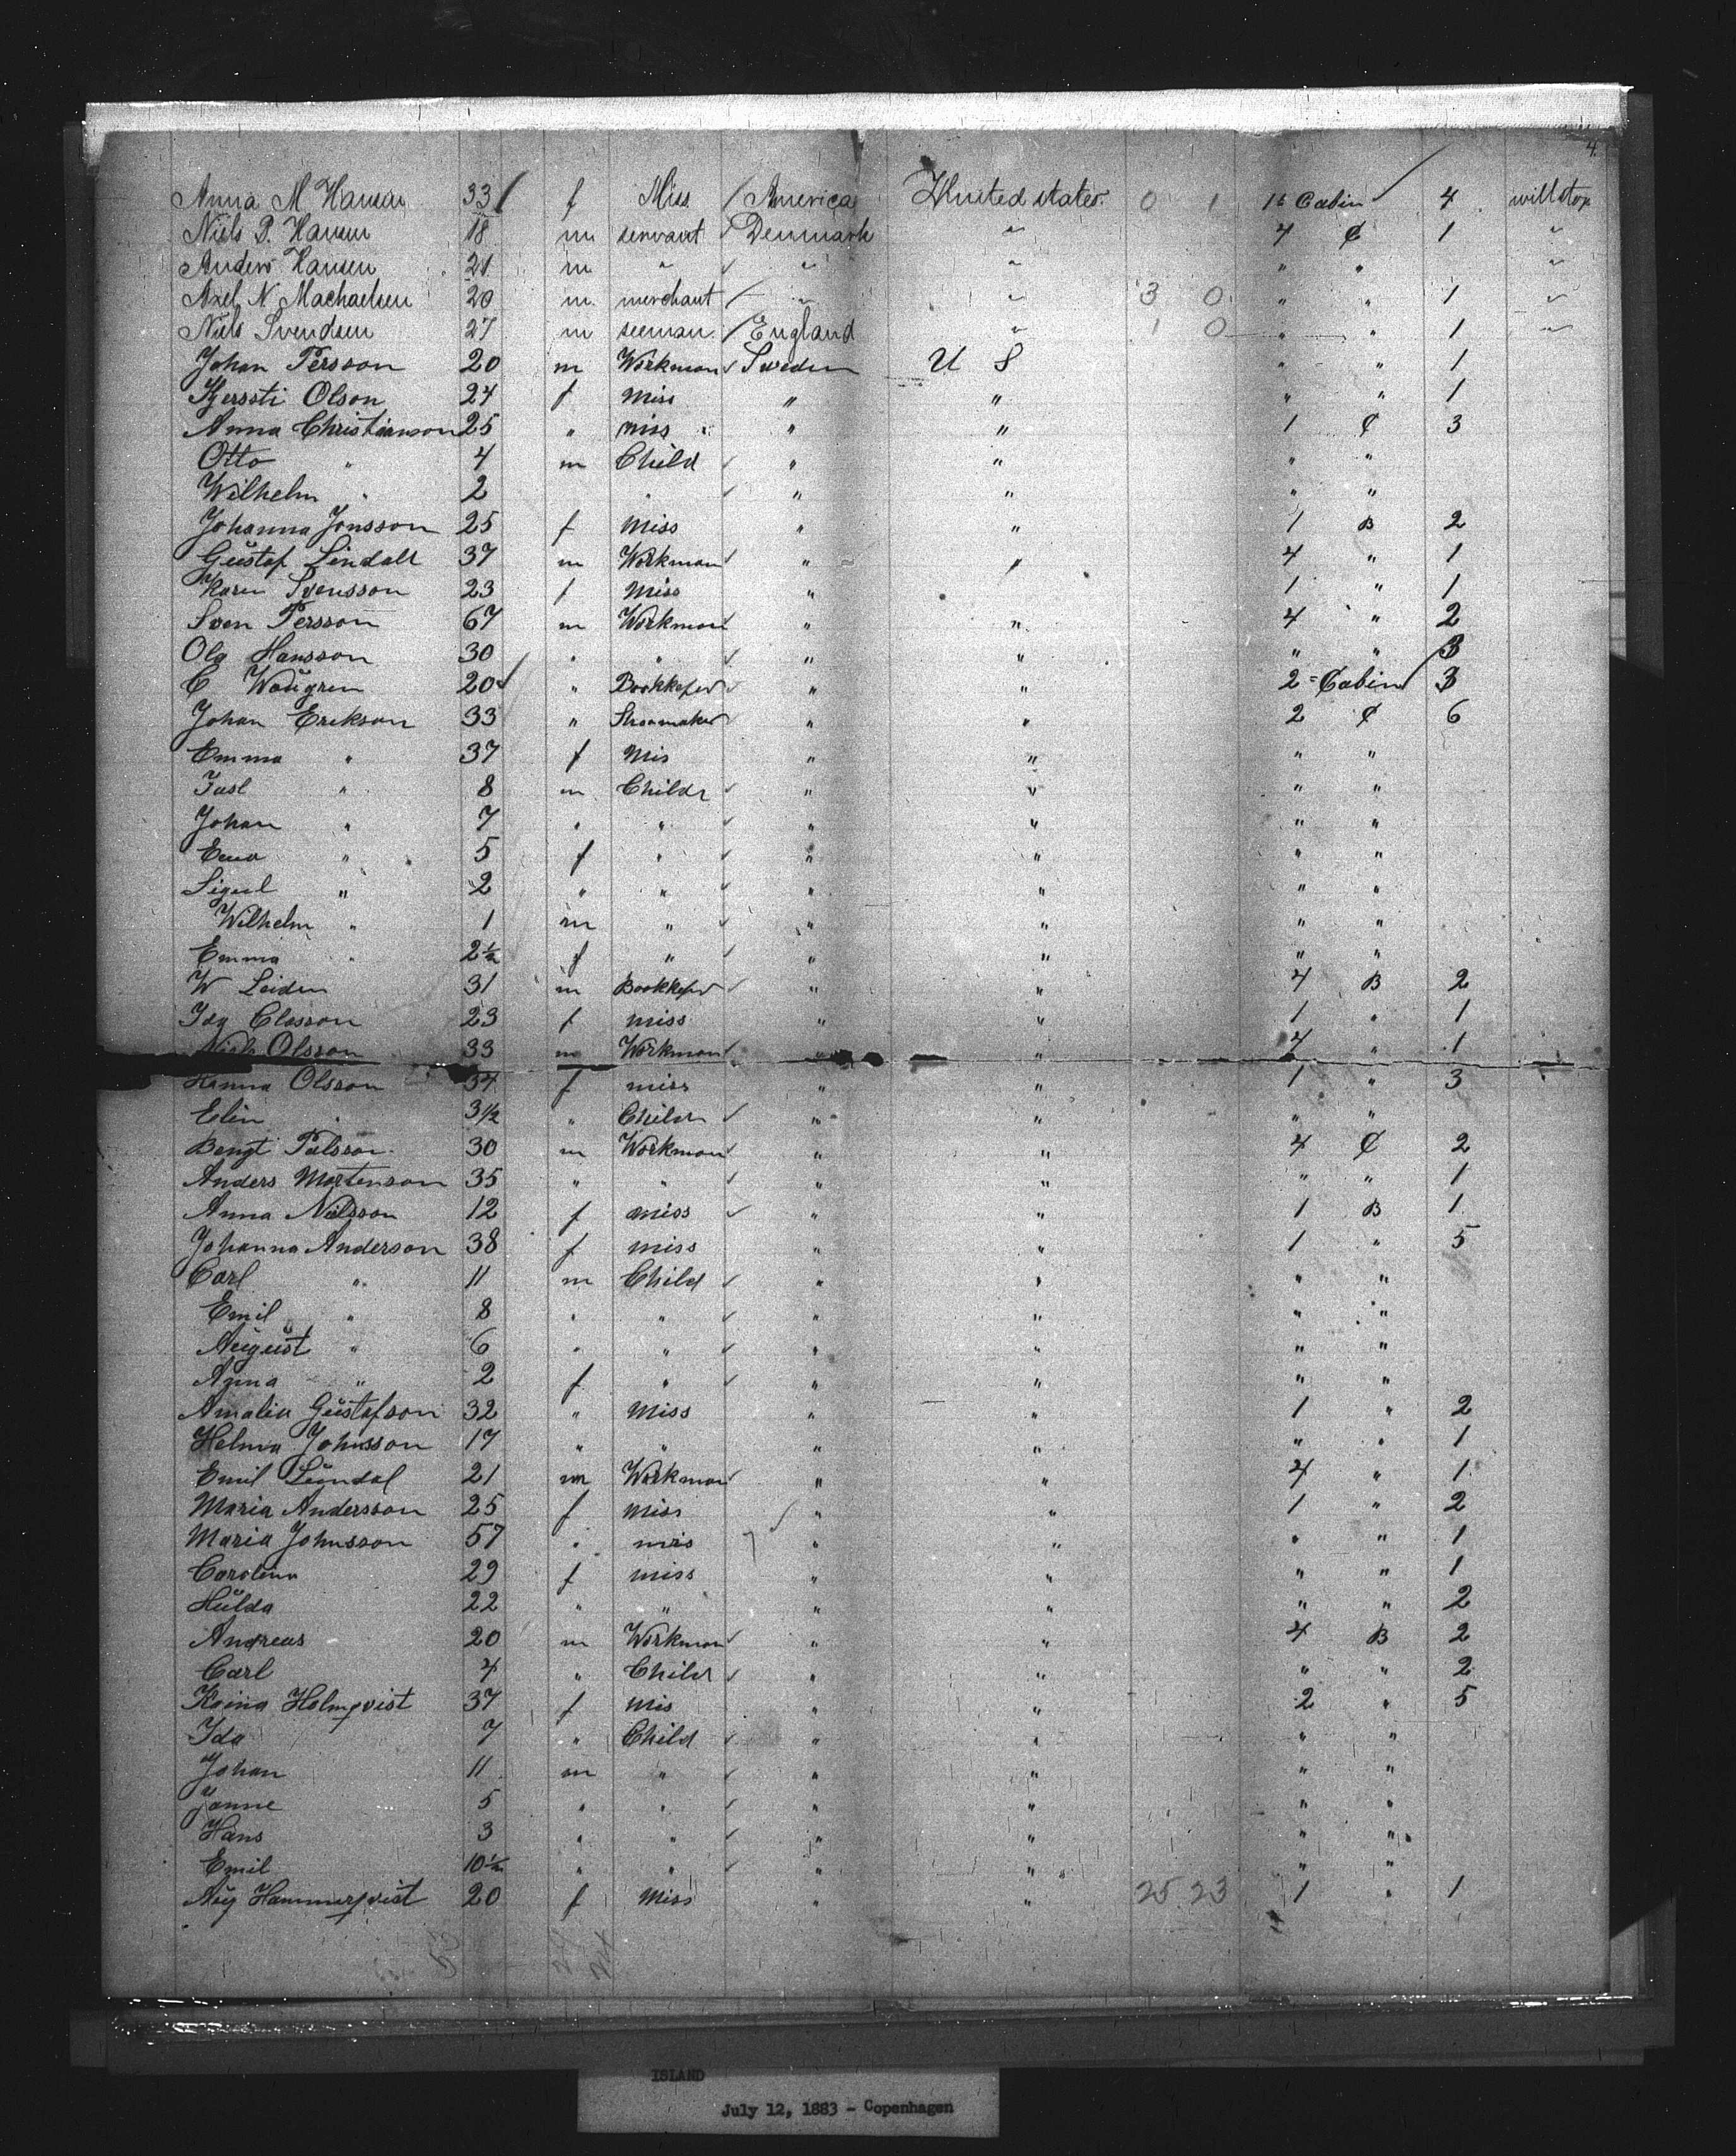 4.
Anna M Hansen 33 f Miss America United states. 0 1 1st Cabin 4 will stop
Niels P. Hansen 18 m servant Denmark " 4 ₵ 1 "
Anders Hansen 21 m " " " " " "
Axel N Machaelsen 20 m merchant " " 3 0 " " 1 "
Niels Svendsen 27 m seeman England " 1 0 " " 1 "
Johan Persson 20 m Workman Sweden U S " " 1
Kjerssti Olson 24 f Miss " " " " 1
Anna Christianson 25 " miss " " 1 ₵ 3
Otto " 4 m Child " " " "
Wilhelm " 2 " " " " "
Johanna Jonsson 25 f Miss " " 1 B 2
Gustaf Lindall 37 m Workman " " 4 " 1
Karin Svensson 23 f Miss " 1 " 1
Sven Persson 67 m Workman " " 4 " 2
Ola Hansson 30 " " " " " " 3
C 20 " Bookkeper " " 2 = Cabin 3
Johan Erikson 33 " Shoemaker " " 2 ₵ 6
Emma " 37 f Mis " " " "
8 m Childr " " " "
Johan " 7 " " " " " "
" 5 f " " " " "
" 2 " " " " " "
Wilhelm " 1 m " " " " "
Emma " 2½ f " " " " "
W Leiden 31 m Bookkeper " " 4 B 2
Ida Classon 23 f miss " " 1 " 1
Olsson 33 m Workman " " 4 " 1
Hanna Olsson 34 f miss " " 1 " 3
Elin " 3½ " Childr " " " "
Bengt Pålsson 30 m Workman " " 4 ₵ 2
Anders Mortenson 35 " " " " " " 1
Anna Nilsson 12 f miss " " 1 B 1
Johanna Anderson 38 f miss " " 1 " 5
Carl " 11 m Child " " " "
Emil " 8 " " " " " "
August " 6 " " " " " "
" 2 f " " " " "
Amalia Gustafson 32 " Miss " " 1 " 2
Helma Johnsson 17 " " " " " " 1
Emil 21 m Workman " " 4 " 1
Maria Andersson 25 f Miss " " 1 " 2
Maria Johnsson 57 " mis " " " " 1
Carolina 29 f miss " " " " 1
Hulda 22 " " " " " " 2
Andreas 20 m Workman " " 4 B 2
Carl 4 " Childr " " " " 2
Holmqvist 37 f Mis " " 2 " 5
Ida 7 " Child " " " "
Johan 11 m " " " " "
Janne 5 " " " " " "
Hans 3 " " " " " "
Emil 10½ " " " " " "
Aug Hammerqvist 20 f Miss " " 25 23 1 " 1
ISLAND
July 12, 1883 - Copenhagen